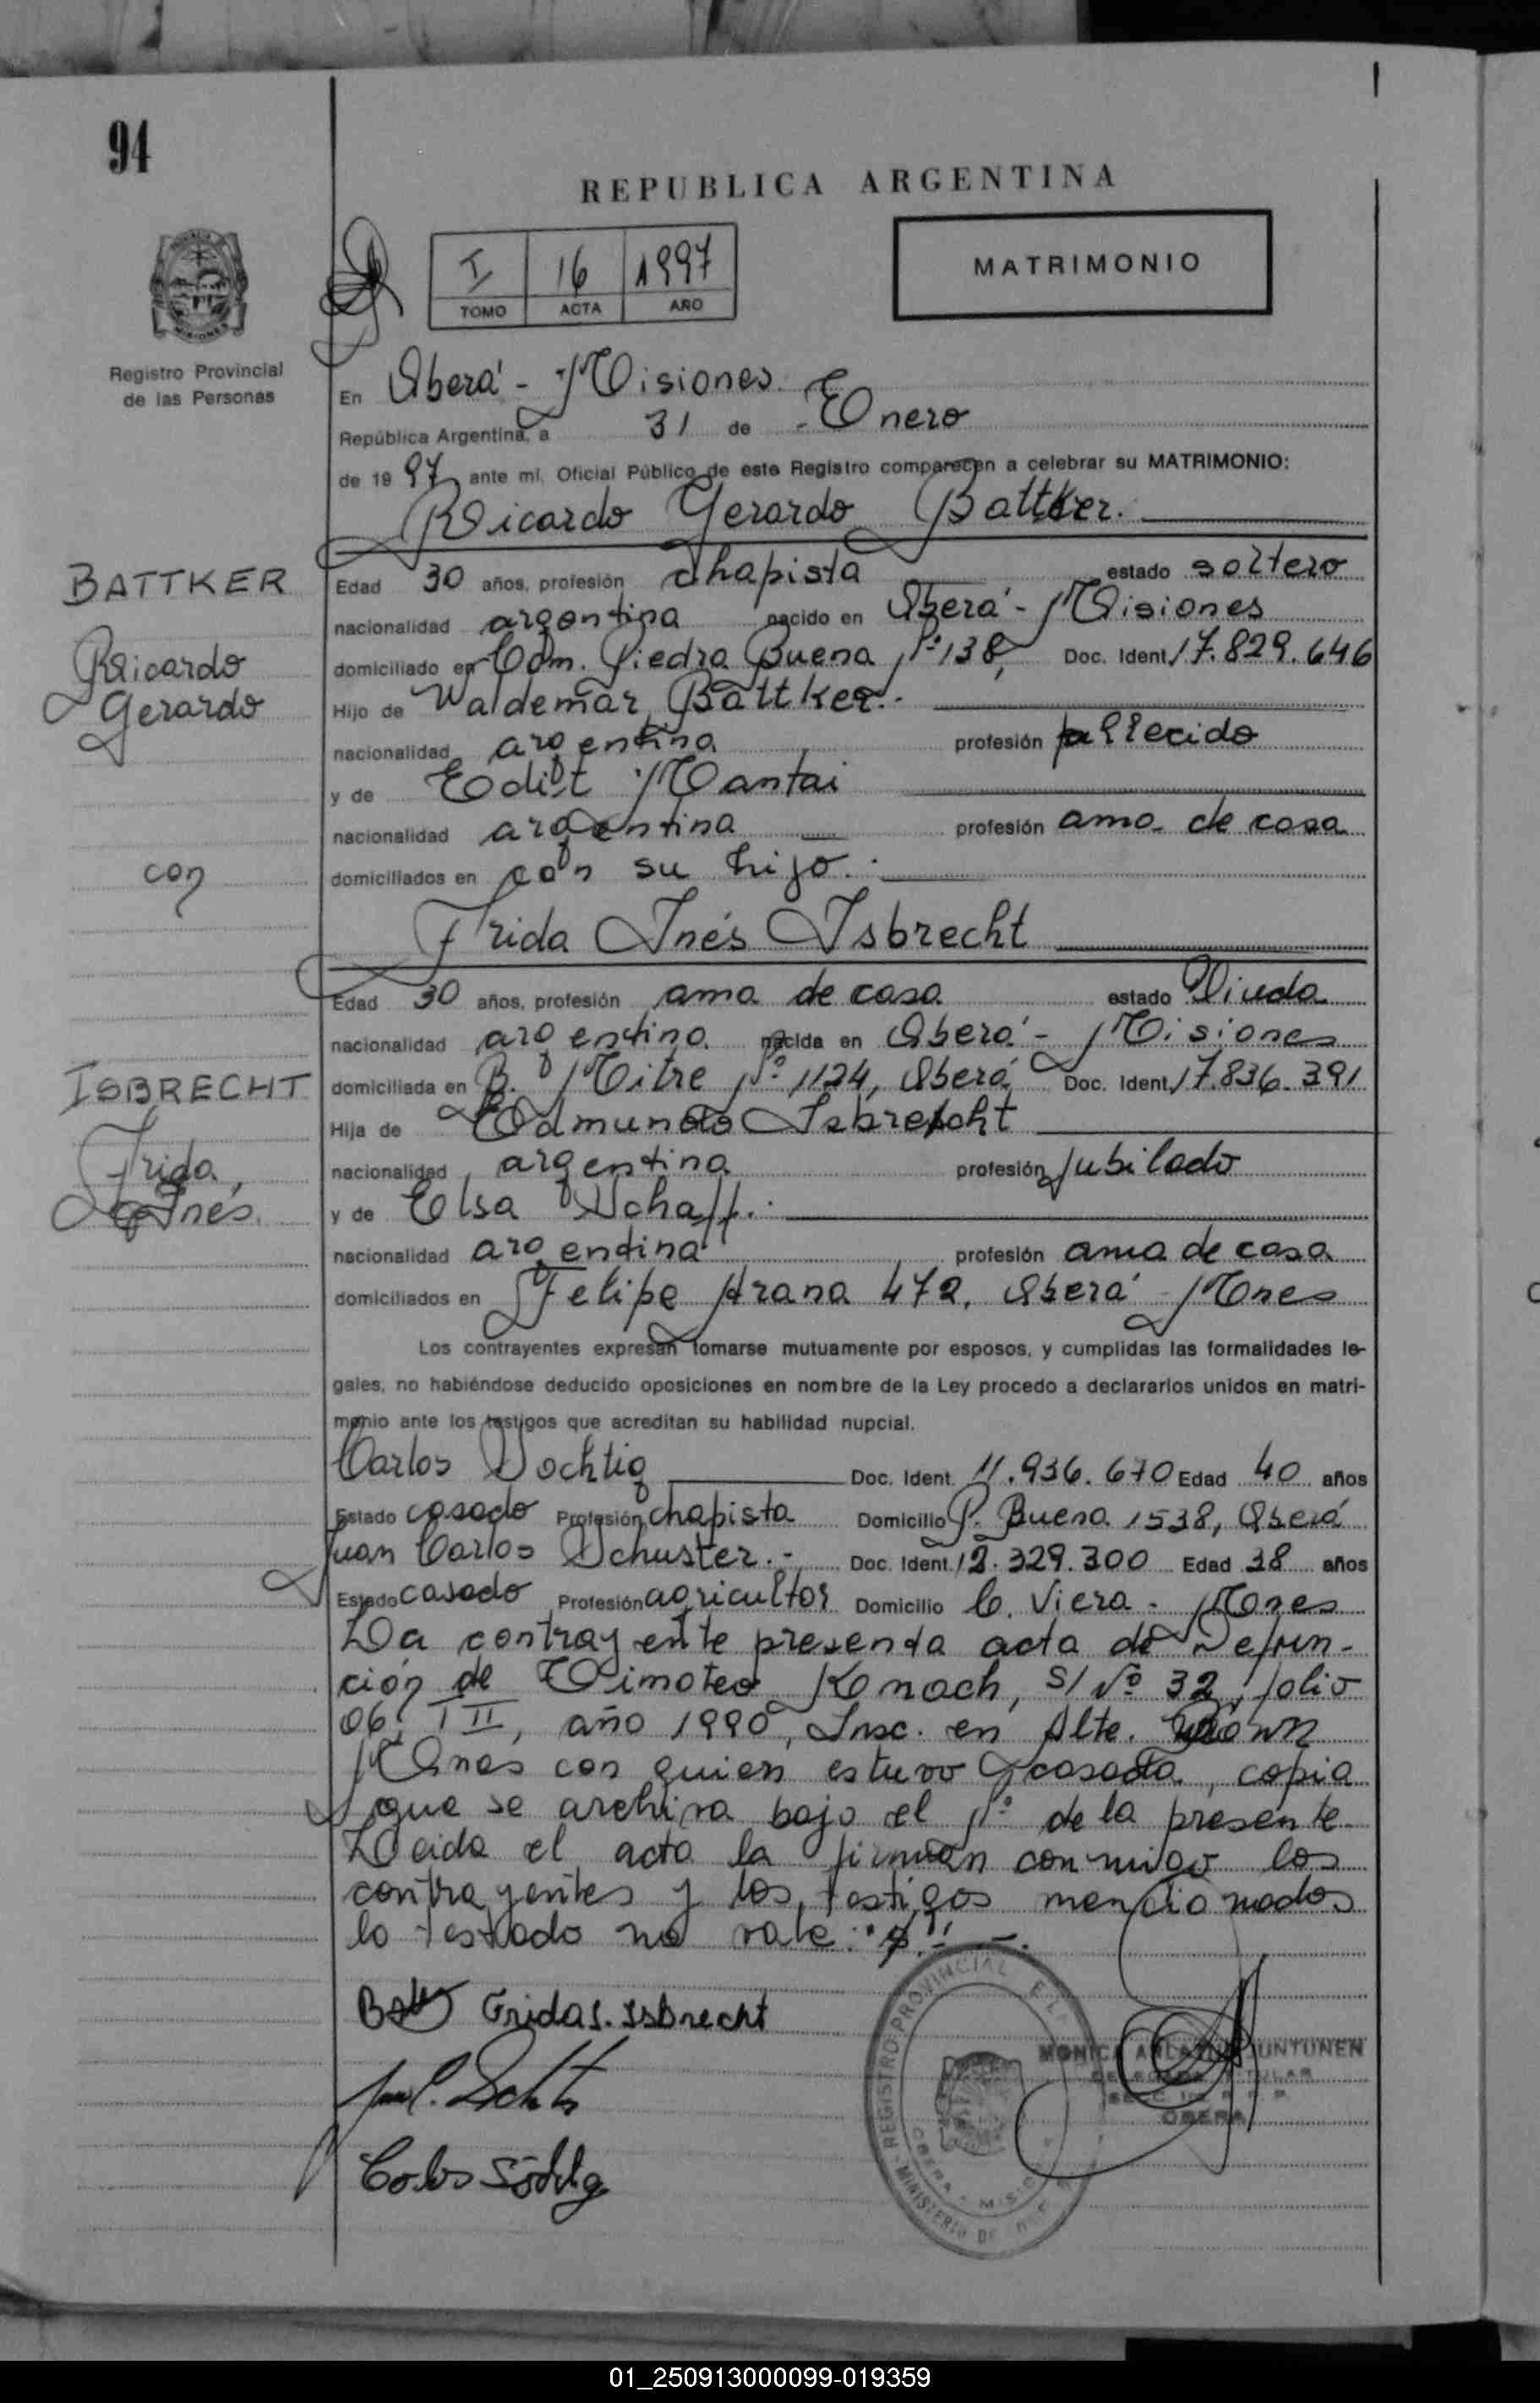 94
REPUBLICA ARGENTINA
I 16 1997
TOMO ACTA AÑO
MATRIMONIO
Registro Provincial
de las Personas
En Oberá - Misiones
República Argentina, a 31 de Enero
de 19 97 ante mí, Oficial Público de este Registro comparecen a celebrar su MATRIMONIO:
Ricardo Gerardo Battker.
BATTKER
Ricardo
Gerardo
Edad 30 años, profesión chapista estado soltero
nacionalidad argentina nacido en Oberá - Misiones
domiciliado en Com. Piedra Buena Nº 138, Doc. Ident. 17.829.646
Hijo de Waldemar Battker.-
nacionalidad argentina profesión fallecido
y de Edit Mantai
nacionalidad argentina profesión ama de casa
con
domiciliados en con su hijo.
Frida Inés Isbrecht
Edad 30 años, profesión ama de casa estado Viuda
nacionalidad argentina nacida en Oberá - Misiones
ISBRECHT
Frida
Inés.
domiciliada en B. Mitre Nº 1124, Oberá Doc. Ident. 17.836.391
Hija de Edmundo Isbrecht
nacionalidad argentina profesión jubilado
y de Elsa Schaff.
nacionalidad argentina profesión ama de casa
domiciliados en Felipe Arana 472, Oberá Mnes
Los contrayentes expresan tomarse mutuamente por esposos, y cumplidas las formalidades le-
gales, no habiéndose deducido oposiciones en nombre de la Ley procedo a declararlos unidos en matri-
monio ante los testigos que acreditan su habilidad nupcial.
Carlos Sochtig Doc. Ident. 11.936.670 Edad 40 años
Estado casado Profesión chapista Domicilio P. Buena 1538, Oberá
Juan Carlos Schuster.- Doc. Ident. 12.329.300 Edad 38 años
Estado casado Profesión agricultor Domicilio C. Viera - Mnes
La contrayente presenta acta de Defun-
ción de Timoteo Knach, S/ Nº 32, folio
06, T II, año 1990, Insc. en Alte. Brown
Mnes con quien estuvo casada, copia
que se archiva bajo el Nº de la presente.
Leida el acta la firman conmigo los
contrayentes y los testigos mencionados
lo testado no vale:
Frida I. Isbrecht
Carlos Söchtig
REGISTRO PROVINCIAL
MINISTERIO DE
OBERA - MISIONES
MONICA JUNTUNEN
DELEGADA TITULAR
OBERA
01_250913000099-019359